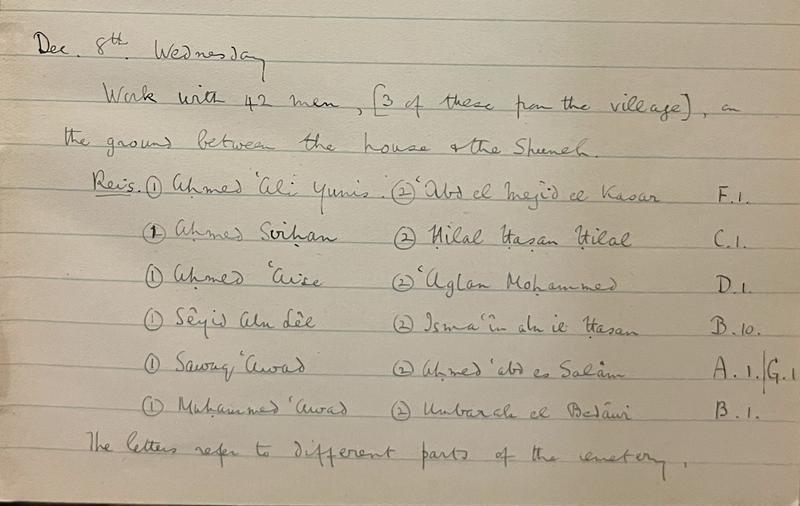 Dec. 8th. Wednesday
Work with 42 men, [3 of these from the village], on
the ground between the house & the Shuneh.
Reis. ① Ahmed ʿAli Yunis. ② ʿAbd el Mejîd el Kasar F.1.
① Ahmed Sirḥan ② Ḥilal Ḥasan Ḥilal C.1.
① Aḥmed ʿAise ② ʿAglan Moḥammed D.1.
① Sêyid Abu dêe ② Ismaʿîn abu ie Ḥasan B.10.
① Sawaq ʿAwad ② Aḥmed ʿabd es Salâm A.1./G.1
① Muḥammed ʿAwad ② Umbarak el Bedâwi B.1.
The letters refer to different parts of the cemetery.